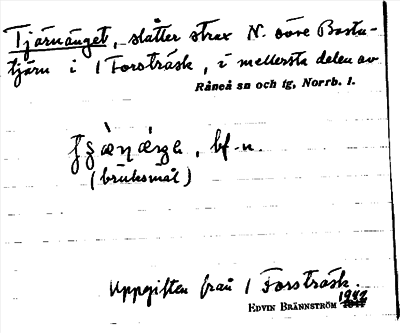 Tjärnänget, slåtter strax N. övre Bastu-
tjärn i 1 Forsträsk, i mellersta delen av
Råneå sn och tg, Norrb. l.
bf-n.
(bruksmål)
Uppgiften från 1 Forsträsk.
EDVIN BRÄNNSTRÖM 1942